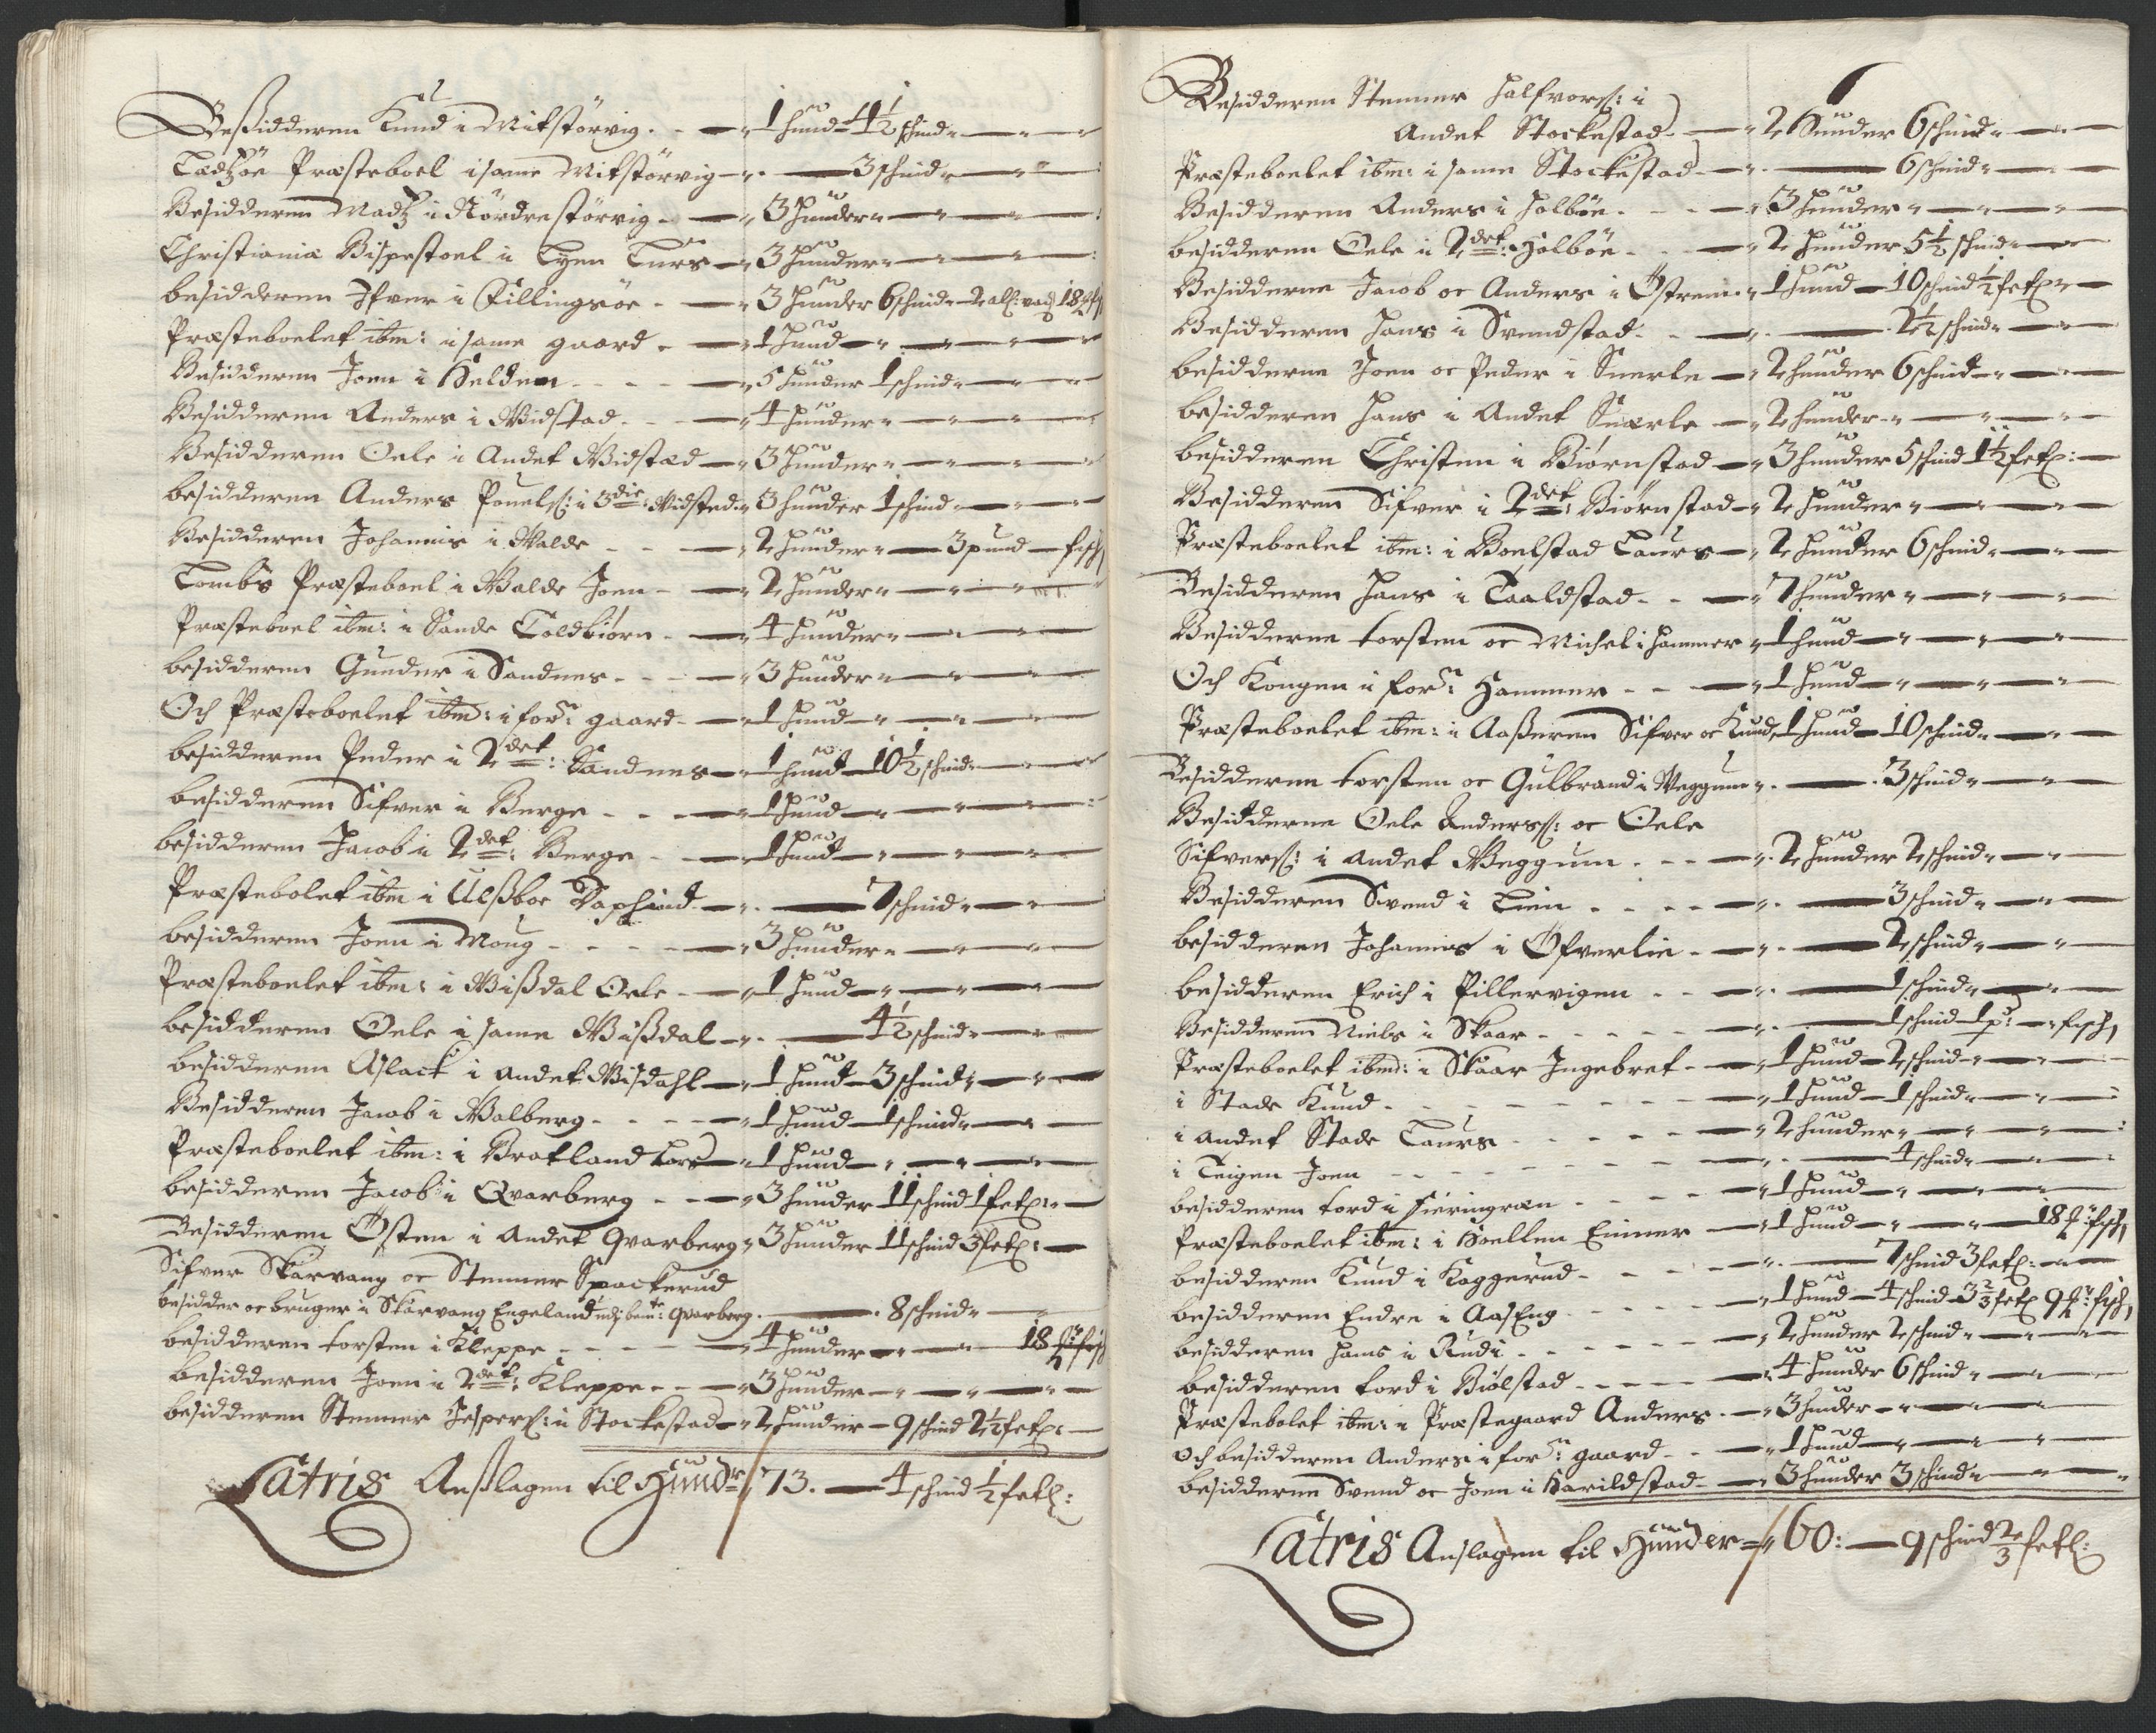 Beßidderen Knud i Mitstörvig. - 1 hund 4½ schind
Lædhöe Præsteboel i same Mitstörvig - 3 schind
Besidderen Madz i Nördrestörvig - 3 hunder
Christiania Bispestoel i Lyen Lurs - 3 hunder
besidderen Ifver i Fillingsöe - 3 hunder 6 schind
Præsteboelet ibm: i same gaard - 1 hund
Besidderen Joen i Helden - 5 hunder 1 schind
Besidderen Anders i Widstad - 4 hunder
Besidderen Oele i Andet Widstæd - 3 hunder
besidderen Anders Pouels: i 3die: Widsted 3 hunder 1 schind
Besidderen Johannis i Walde - 2 hunder 3 pund fisch
Lombs Præsteboel i Walde Joen - 2 hunder
Præsteboel ibm: i Sande Toldbiörn - 4 hunder
besidderen Gunder i Sandnes - 3 hunder
Och Præsteboelet ibm: i forne: gaard - 1 hund
besidderen Peder i 2det: Sandnes - 1 hund 10½ schind
besidderen Sifver i Berge - 1 hund
besidderen Jacob i 2det: Berge - 1 hund
Præstebolet ibm i Ulßboe - 7 schind
besidderen Joen i Moug - 3 hunder
Præsteboelet ibm: i Wißdal Oele - 1 hund
besidderen Oele i same Wißdal - 4½ schind
besidderen Aslack i andet Wisdahl - 1 hund 3 schind
Besidderen Jacob i Walberg - 1 hund 1 schind
Præsteboelet ibm: i Bratland Tord - 1 hund
besidderen Jacob i Qvarberg - 3 hunder 11 schind 1 fetl:
Besidderen Östen i Andet Qvarberg 3 hunder 11 schind 3 fetl:
Sifver Skarvang oc Stenner Spackerud
besidder oc bruger i Skarvang Engeland Qvarberg. 8 schind
besidderen torsten i Kleppe - 4 hunder 18 fisch
besidderen Joen i 2det: Kleppe - 3 hunder
besidderen Stenner Jespers: i Stockestad 2 hunder 9 schind 2½ fetl:
Latris Anßlagen til Hundr 73. 4 schind ½ fetl:
Besidderen Stenner Halfvors: i
Andet Stockestad - 2 Hunder 6 schind
Præsteboelet ibm: i same Stockestad - 6 schind
Besidderen Anders i Holböe - 3 hunder
besidderen Oele i 2det: Holböe - 2 hunder 5½ schind
Besidderne Jacob oc Anders i Östrem 1 hund 10 schind ½ fetl
Besidderen Hans i Svendstad - 2½ schind
besidderne Joen oc Peder i Snerle 2 hunder 6 schind
besidderen Hans i Andet Snærle 2 hunder
besidderen Christen i Biørnstad 3 hunder 5 schind 1½ fetl:
Besidderen Sifver i 2det: Biørnstad 2 hunder
Præsteboelet ibm: i Boelstad Laurs 2 hunder 6 schind
Besidderen Hans i Taaldstad - 7 hunder
Besidderne torsten oc Michel i Hammer 1 hund
Och Kongen i forne: Hammer - 1 hund
Præsteboelet ibm: i Aaßeren Sifver oc Knud 1 hund 10 schind
Besidderen torsten oc Gulbrand i Weggum 3 schind
Besidderne Oele Anderss: oc Oele
Sifvers: i andet Weggum - 2 hunder 2 schind
Besidderen Svend i Lien - 3 schind
besidderen Johannis i Öfverlie - 2 schind
besidderen Erich i Pillervigen - 1 schind
Besidderen Niels i Skaar - 1 schind 1 p: fisch
Præsteboelet ibm: i Skaar Ingebret - 1 hund 2 schind
i Stade Knud - 1 hund 1 schind
i andet Stade Laurs - 2 hunder
i Teigen Joen - 4 schind
besidderen tord i Fieringræn - 1 hund
Præsteboelet ibm: i Hoellen Einner - 1 hund 18 fisch
besidderen Knud i Kaggerud - 7 schind 3 fetl:
besidderen Endre i AasEng - 1 hund 4 schind 3⅔ fetl 9 fisch
besidderen Hans i Rudi - 2 hunder 2 schind
besidderen tord i Biölstad - 4 hunder 6 schind
Præstebolet ibm: i Præstegaard Anders - 3 hunder
och besidderen Anders i forne: gaard - 1 hund
besidderne Svend oc Joen i Harildstad - 3 hunder 3 schind
Latris Anslagen til Hunder 60: 9 schind ⅔ fetl: